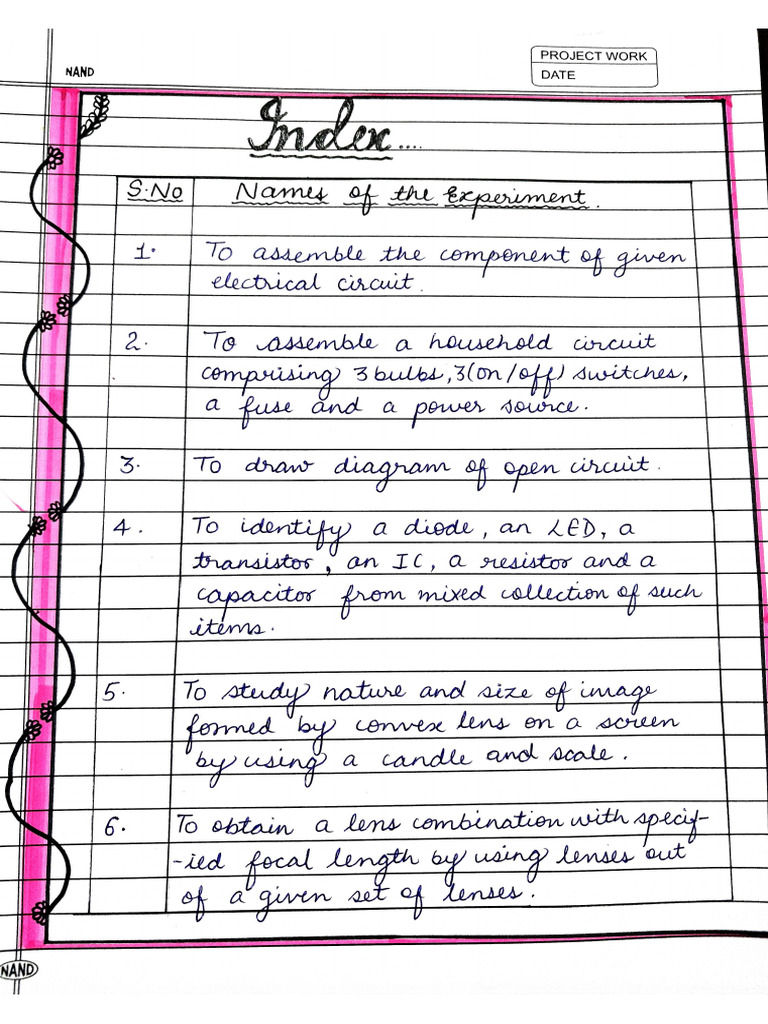 PROJECT WORK
NAND
DATE
Index....
S.No Names of the Experiment.
1. To assemble the component of given
electrical circuit.
2. To assemble a household circuit
comprising 3 bulbs, 3(on/off) switches,
a fuse and a power source.
3. To draw diagram of open circuit.
4. To identify a diode, an LED, a
transistor, an IC, a resistor and a
capacitor from mixed collection of such
items.
5. To study nature and size of image
formed by convex lens on a screen
by using a candle and scale.
6. To obtain a lens combination with specif-
-ied focal length by using lenses out
of a given set of lenses.
NAND